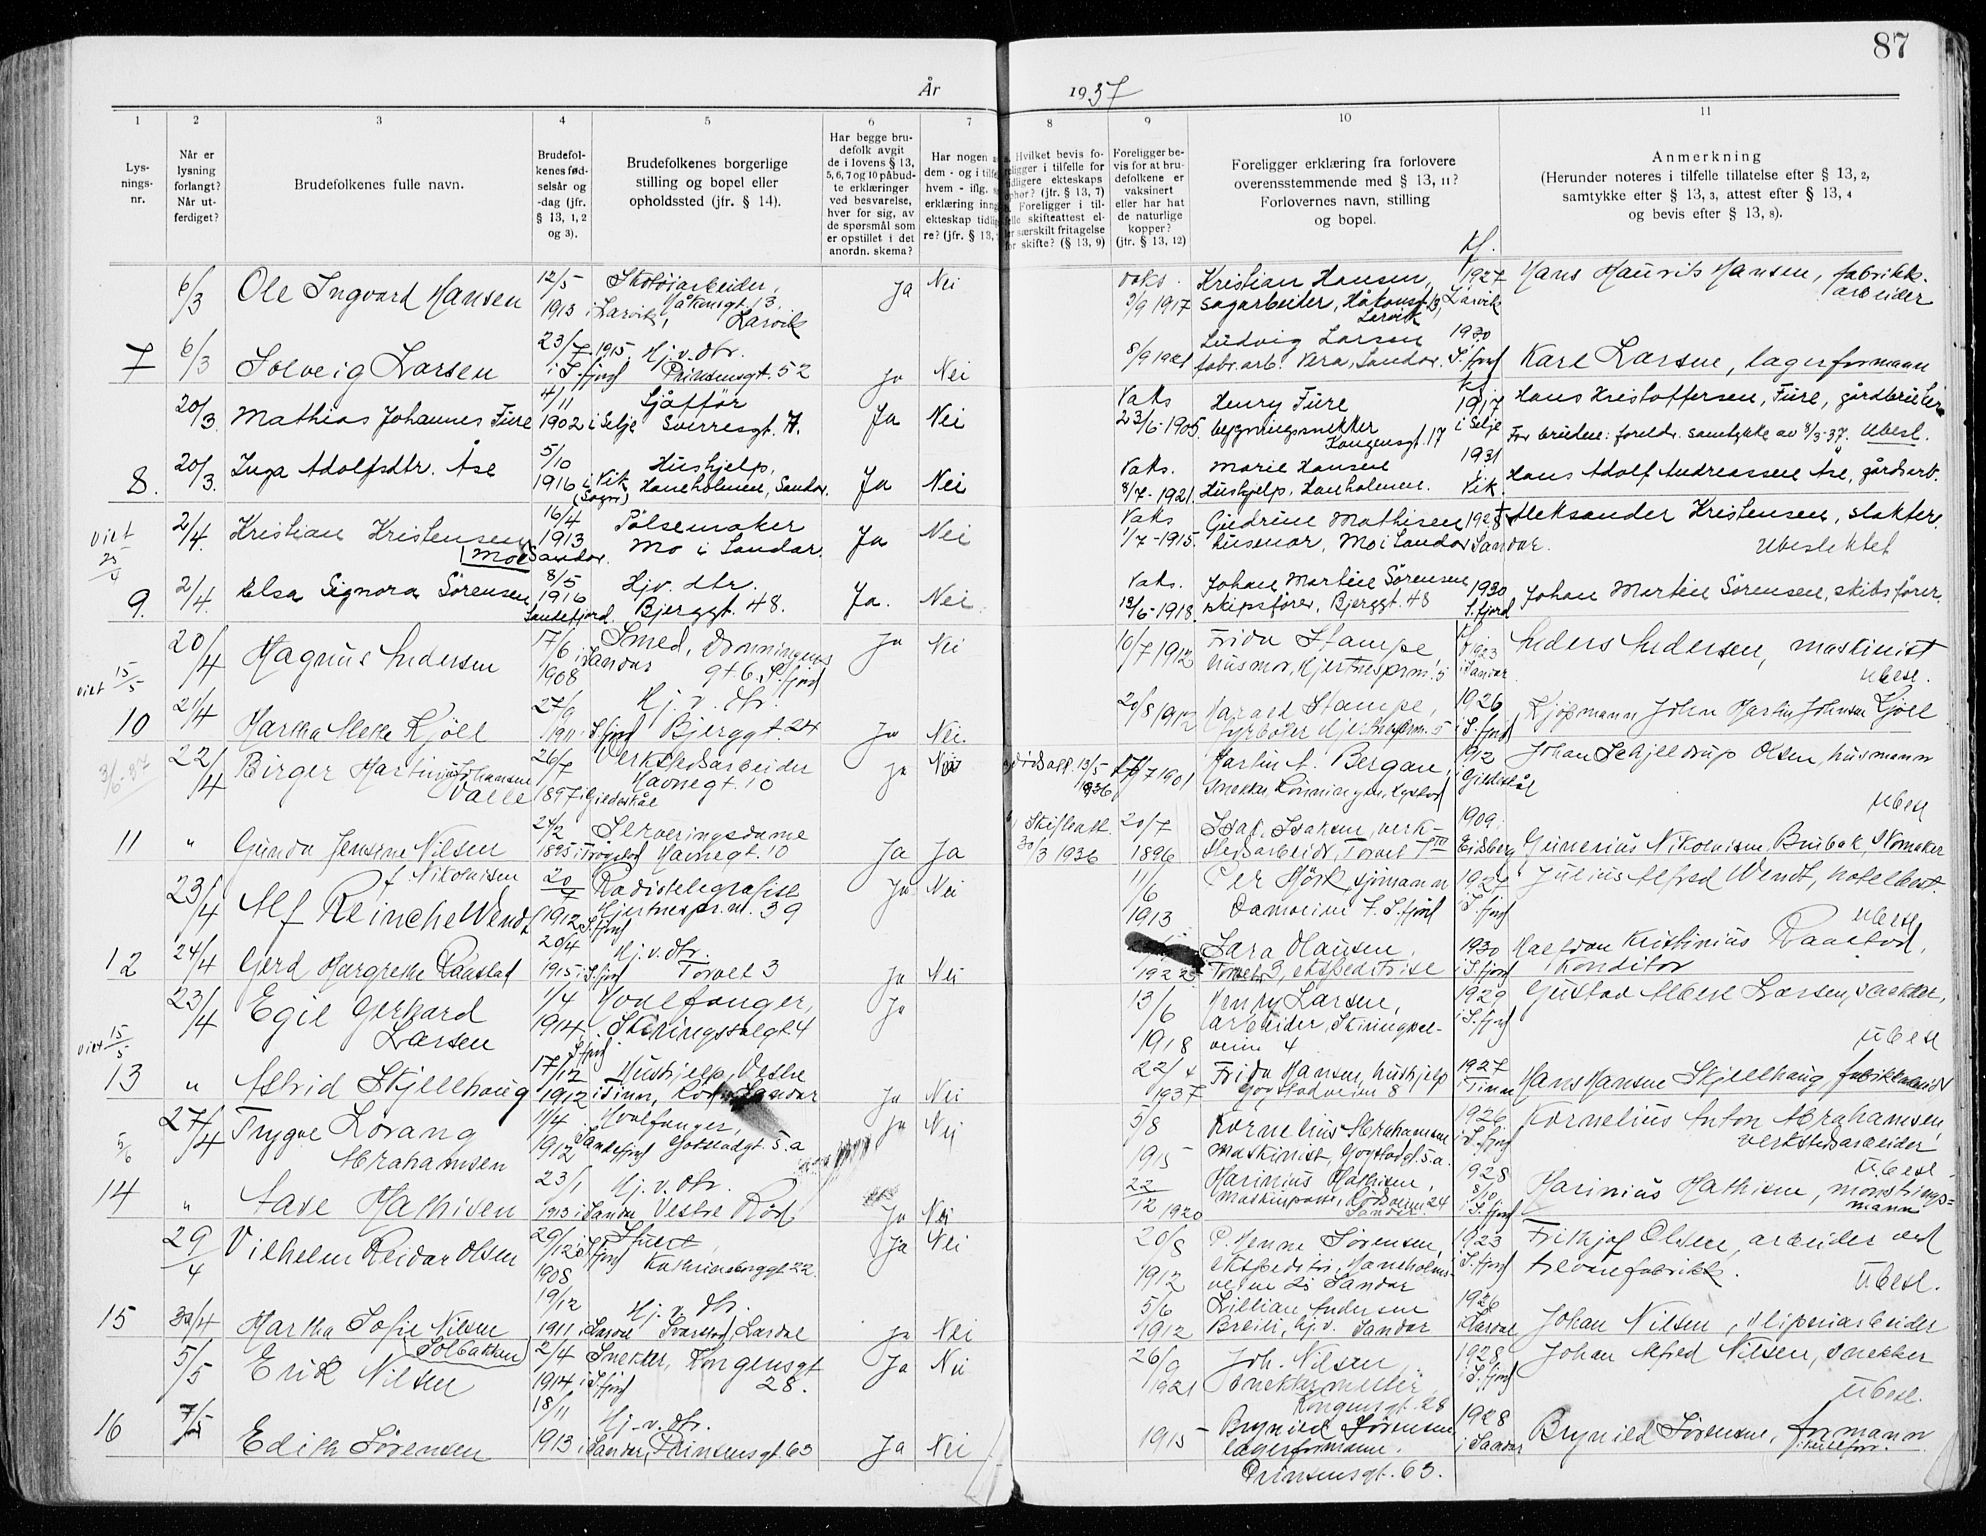 87
År 1937
1
2
3
4
5
6
7
8
9
10
11
Lys-
nings-
nr.
Når er
lysning
forlangt?
Når ut-
ferdiget?
Brudefolkenes fulle navn.
Brudefol-
kenes fød-
selsår og
-dag (jfr.
§ 13, 1, 2
og 3).
Brudefolkenes borgerlige
stilling og bopel eller
opholdssted (jfr. § 14).
Har begge bru-
defolk avgit
de i lovens § 13,
5, 6, 7 og 10 påbud-
te erklæringer
ved besvarelse,
hver for sig, av
de spørsmål som
er opstillet i det
anordn. skema?
Har nogen
dem - og i tilf
hvem - iflg.
erklæring inng
ekteskap tidlig
re? (jfr. § 13,
Hvilket bevis fo-
religger i tilfelle for
tidligere ekteskaps
ophør? (jfr. § 13, 7)
Foreligger i til-
felle skifteattest el-
ler særskilt fritagelse
for skifte? (§ 13, 9)
Foreligger be-
vis for at bru-
defolkene er
vaksinert
eller har hat
de naturlige
kopper?
(jfr. § 13, 12)
Foreligger erklæring fra forlovere
overensstemmende med § 13, 11?
Forlovernes navn, stilling
og bopel.
Anmerkning
(Herunder noteres i tilfelle tillatelse efter § 13, 2,
samtykke efter § 13, 3, attest efter § 13, 4
og bevis efter § 13, 8).
6/3 Ole Ingvard Hansen 12/5 1913 i Larvik Skotøiarbeider, Håkensgt. 13, Larvik Ja Nei Vaks. 3/9 1917 Kristian Hansen, sagarbeider, Håkonsgt. 13, Larvik Kf. 1927 Larvik Hans Maurits Hansen, fabrikk-
arbeider
7 6/3 Solveig Larsen 23/7 1915 i S.fjord Hj. v. dtr. Prinsensgt. 52 Ja Nei 8/9 1921 Ludvig Larsen fabr.arb. Vera, Sandar. 1930 S.fjord Karl Larsen, lagerformann
20/3. Mathias Johannes Füre 4/11 1902 i Selje Sjåffør Sverresgt. 7. Ja Nei Vaks 23/6-1905. Henry Füre bygningssnekker Kongensgt. 17 Kf. 1917 i Selje Hans Kristoffersen, Füre, gårdbruker
For bruden: foreldr. samtykke av 8/3-37. Ubesl.
8. 20/3. Inga Adolfsdtr. Åse 5/10 1916 i Vik (Sogn) Hushjelp, Haneholmen, Sandar. Ja Nei Vaks. 8/7-1921. Marie Hansen Hushjelp, Hanholmen. 1931 Vik. Hans Adolf Andreassen Åse, gårdsarb.
viet 25/4 2/4. Kristian Kristensen (Moe) 16/4 1913 Sandar. Pølsemaker Mo i Sandar. Ja Nei Vaks 1/7-1915. Gudrun Mathisen husmor, Mo i Sandar 1928 Sandar. Aleksander Kristensen, slakter.
Ubeslektet
9. 2/4. Elsa Signora Sørensen 8/5 1916 Sandefjord Hjv. dtr. Bjerggt. 48. Ja. Nei. Vaks. 13/6-1918. Johan Martin Sørensen skipsfører, Bjerggt. 48 1930 S.fjord Johan Martin Sørensen, skibsfører.
viet 15/5 20/4 Magnus Andersen 17/6 1908 i Sandar Smed, Dronningens gt 6. S.fjord Ja Nei 10/7 1912 Frida Stampe husmor, Hjertnesprm. 5 Kf 1923 i Sandar. Anders Andersen, maskinist
Ubesl.
10 21/4 Martha Mette Kjøll 27/9 1911 S.fjord Hj. v. dtr. Bjerggt. 24 Ja Nei. 20/8 1912 Harald Stampe, fyrbøter Hjertnesprm. 5 1926 i S.fjord Kjøpmann John Martin Johnsen Kjøll
3/6-37 22/4 Birger Martinus Johansen Valle 26/7 1897 i Gildeskål Verkstedsarbeider Havnegt. 10 Ja Nei dødsatt. 13/5 1936 17/7 1901 Martin A. Bergan, snekker Rønningen, Nyland 1912 i Gildeskål Johan Schjeldrup Olsen, husmann
Ubesl
11 " Gunda Jensine Nilsen f. Nikolaisen 24/2 1895 i Trøgstad Serveringsdame Havnegt. 10 Ja Ja Skifteatt. 30/3 1936 20/7 1896 Isak Isaksen, verk-
stedsarbeider, Torvet 1909 Eidsberg Gunerius Nikolaisen Brubak, Skomaker
23/4 Alf Reinche Wendt 20/9 1912 S.fjord Radiotelegrafist Hjertnespr.nt. 39 Ja Nei 11/6 1913 Per Mørk, sjømann 7. S.fjord 1927 i S.fjord Julius Alfred Wendt, hotelbest.
Ubesl
12 24/4 Gerd Margrethe Raastad 20/4 1915 i S.fjord Hj. v. dtr. Torvet 3 Ja Nei 1922 Sara Hansen, Torvet 3, ekspeditrise 1930 i S.fjord Halfdan Kristinius Raastad,
Konditor
viet 15/5 23/4 Egil Gerhard Larsen 1/4 1914 S.fjord Hvalfanger, Skiringssalgt 4 Ja 13/6 1918 Henry Larsen, arbeider, Skiringssal-
veien 4 1929 i S.fjord Gustav Albert Larsen, snekker,
Ubesl
13 " Astrid Skjellhaug 17/12 1912 i Tinn, Hushjelp, Vestre Rød, Sandar Ja Nei 22/4 1937 Frida Hansen, hushjelp Gogstadveien 8 1927 Tinn Hans Hansen Skjellhaug fabrikkmand
5/6 27/4 Trygve Lorang Abrahamsen 11/4 1912 Sandefjord Hvalfanger, Gokstadgt. 5.a Ja Nei 5/8 1915 Kornelius Abrahamsen maskinist, Gogstadgt. 5.a. 1926 i S.fjord Kornelius Anton Abrahamsen
verkstedsarbeider
Ubesl
14 " Aase Mathisen 23/1 1913 i Sandar Hj. v. dtr. Vestre Rød Ja Nei 22/12 1920 Marinius Mathisen, maskinpasser, Rødsveien 24 Sandar. 1928 8/10 i S.fjord Marinius Mathisen, mønstrings-
mann
29/4 Vilhelm Reidar Olsen 29/12 1908 i S.fjord Stuert, Kathrinebor​ggt. 22. Ja Nei 20/8 1912 P. Henne Sørensen, ekspeditør, Haneholms-
veien 25 Sandar 1923 i S.fjord Frithjof Olsen, arbeider ved
tranfabrikk.
Ubesl.
15 30/4 Martha Sofie Nilsen (Solbakken) 19/12 1911 i Lardal Hj. v. dtr. Svarstad, Lardal Ja Nei 5/6 1912 Lillian Andersen Breili, hj.v. Sandar 1926 Lardal Johan Nilsen, sliperiarbeider
5/5 Erik Nilsen 2/4 1914 i S.fjord Snekker, Kongensgt 28. Ja Nei 26/9 1921 Joh. Nilsen, snekkermester, Kongensgt. 28 1928 i S.fjord Johan Alfred Nilsen, snekker
Ubesl.
16 7/5 Edith Sørensen 18/11 1913 i Sandar, Hj. v. dtr. Prinsensgt. 63 Ja Nei 1915 Brynild Sørensen lagerformann. Prinsensgt. 63. 1928 i Sandar Brynild Sørensen, formann